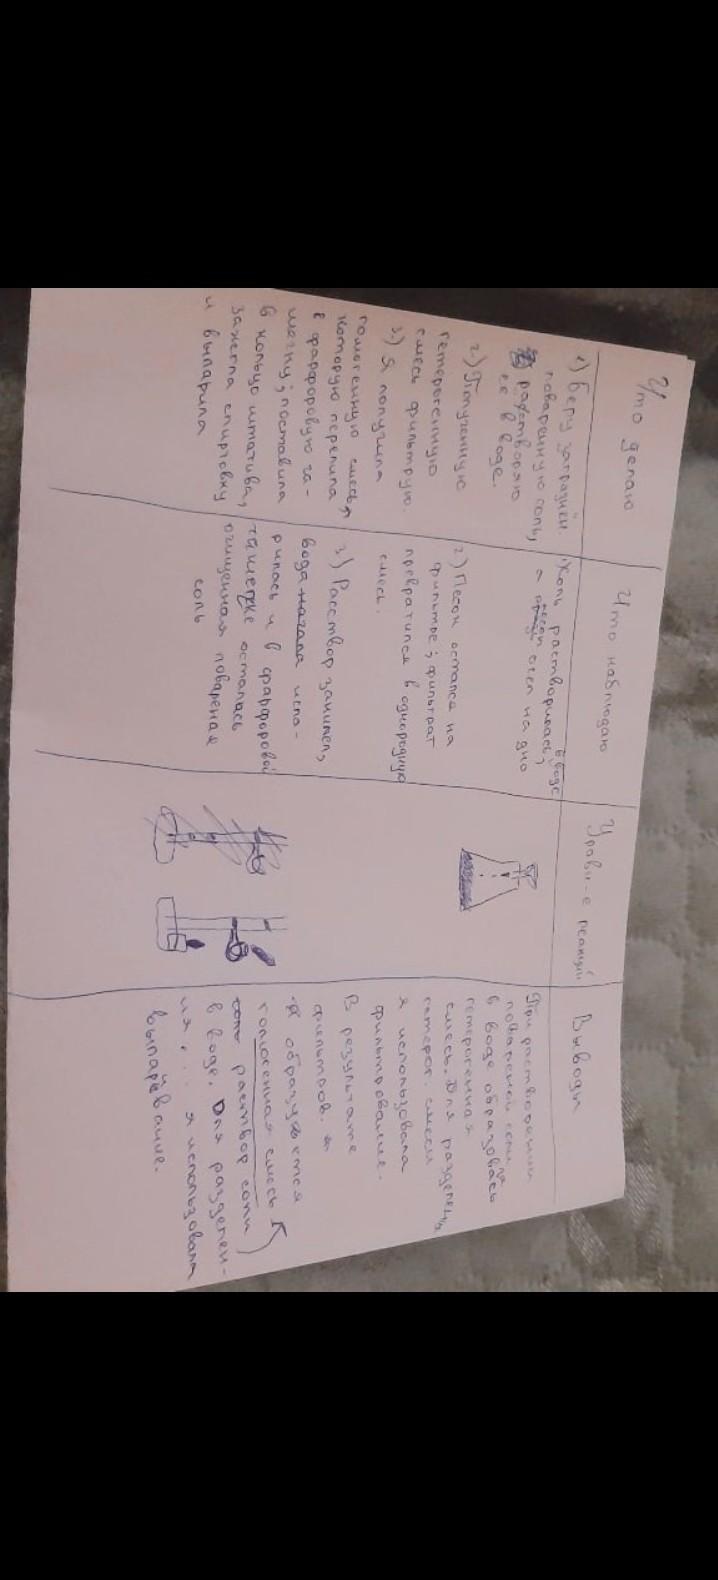 Что делаю
1) Беру загразнён.
поваренную соль,
растворяю
её в воде.
2.) Полученную
гетерогенную
смесь фильтрую.
3.) Я получила
гомогенную смесь,
которую перелила
в фарфоровую ча-
шечку; поставила
в кольцо штатива,
зажгла спиртовку
и выпарила
Что наблюдаю
1) Соль растворилась в воде,
а песок осел на дно
2) Песок остался на
фильтре; фильтрат
превратился в однородную
смесь.
3) Расствор закипел,
вода начала испа-
рилась и в фарфоровой
чашечке осталась
очищенная повареная
соль
Уравн-е реакций
Выводы
При растворении
повареной соли
в воде образовалась
гетерогенная
смесь. Для разделения
гетерог. смеси
я использовала
фильтрование.
В результате
фильтров.
образуется
гомогенная смесь
(раствор соли
в воде. Для разделен-
ия . . . я использовала
выпаривание.